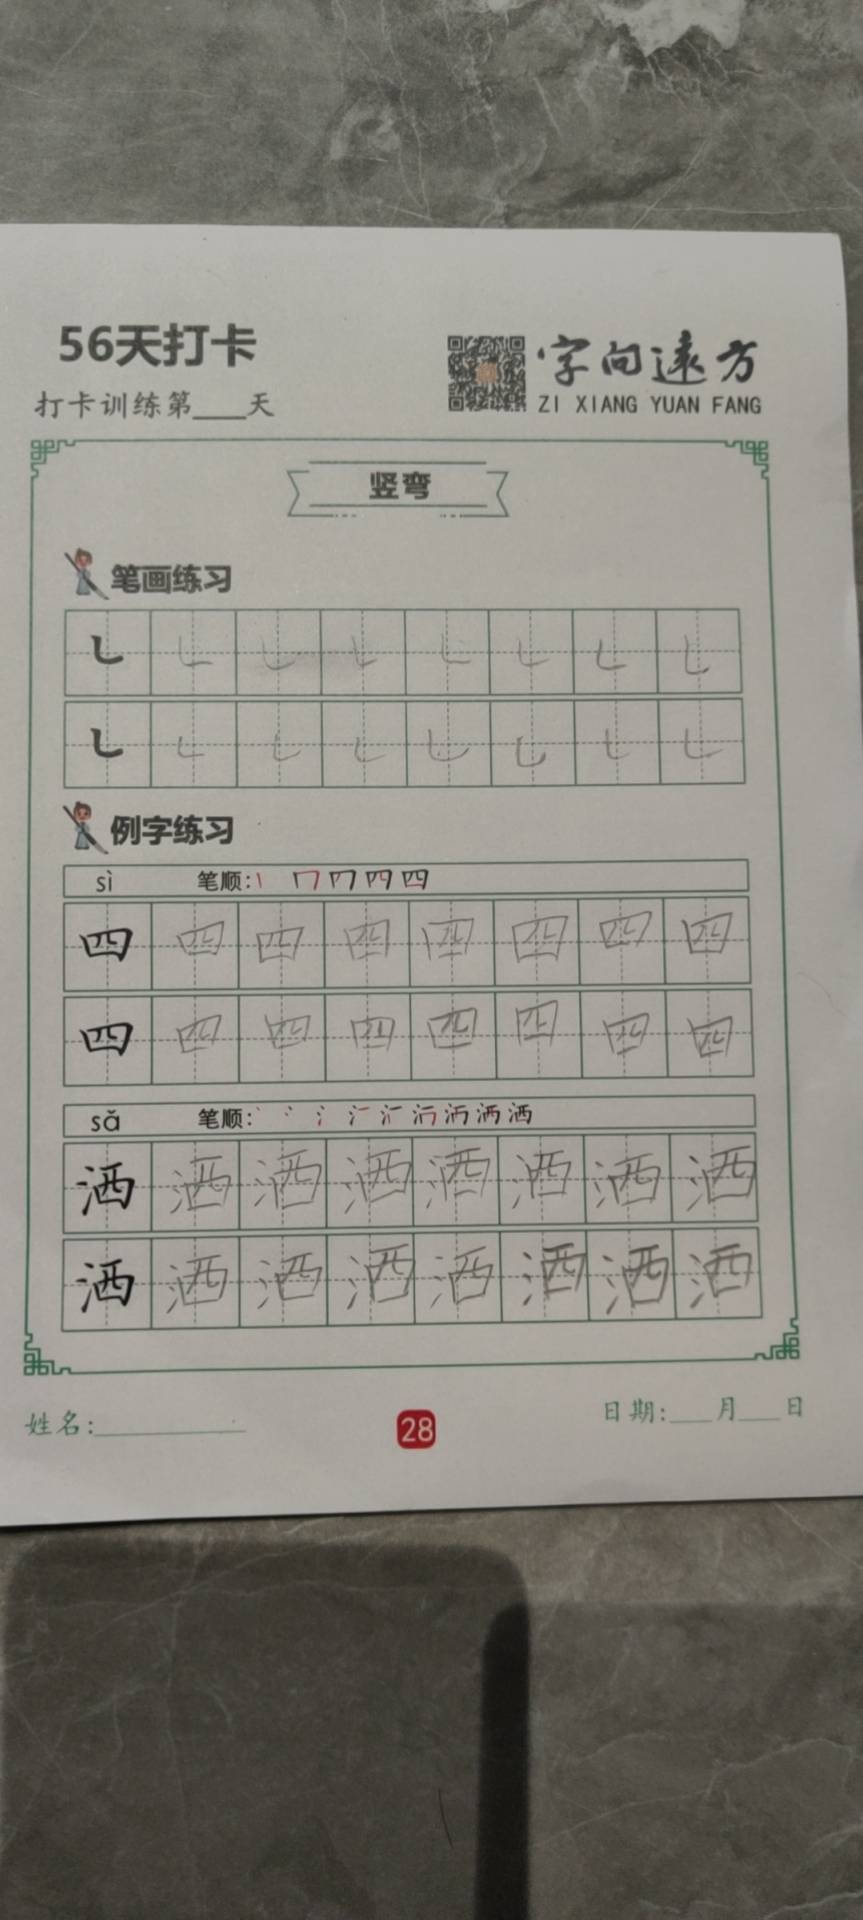 56天打卡
打卡训练第____天
字向远方
ZI XIANG YUAN FANG
竖弯
笔画练习
㇄ ㇄ ㇄ ㇄ ㇄ ㇄ ㇄ ㇄
㇄ ㇄ ㇄ ㇄ ㇄ ㇄ ㇄ ㇄
例字练习
sì 笔顺: 四
四 四 四 四 四 四 四 四
四 四 四 四 四 四 四 四
sǎ 笔顺: 洒
洒 洒 洒 洒 洒 洒 洒 洒
洒 洒 洒 洒 洒 洒 洒 洒
姓名:____________
28
日期:___月___日